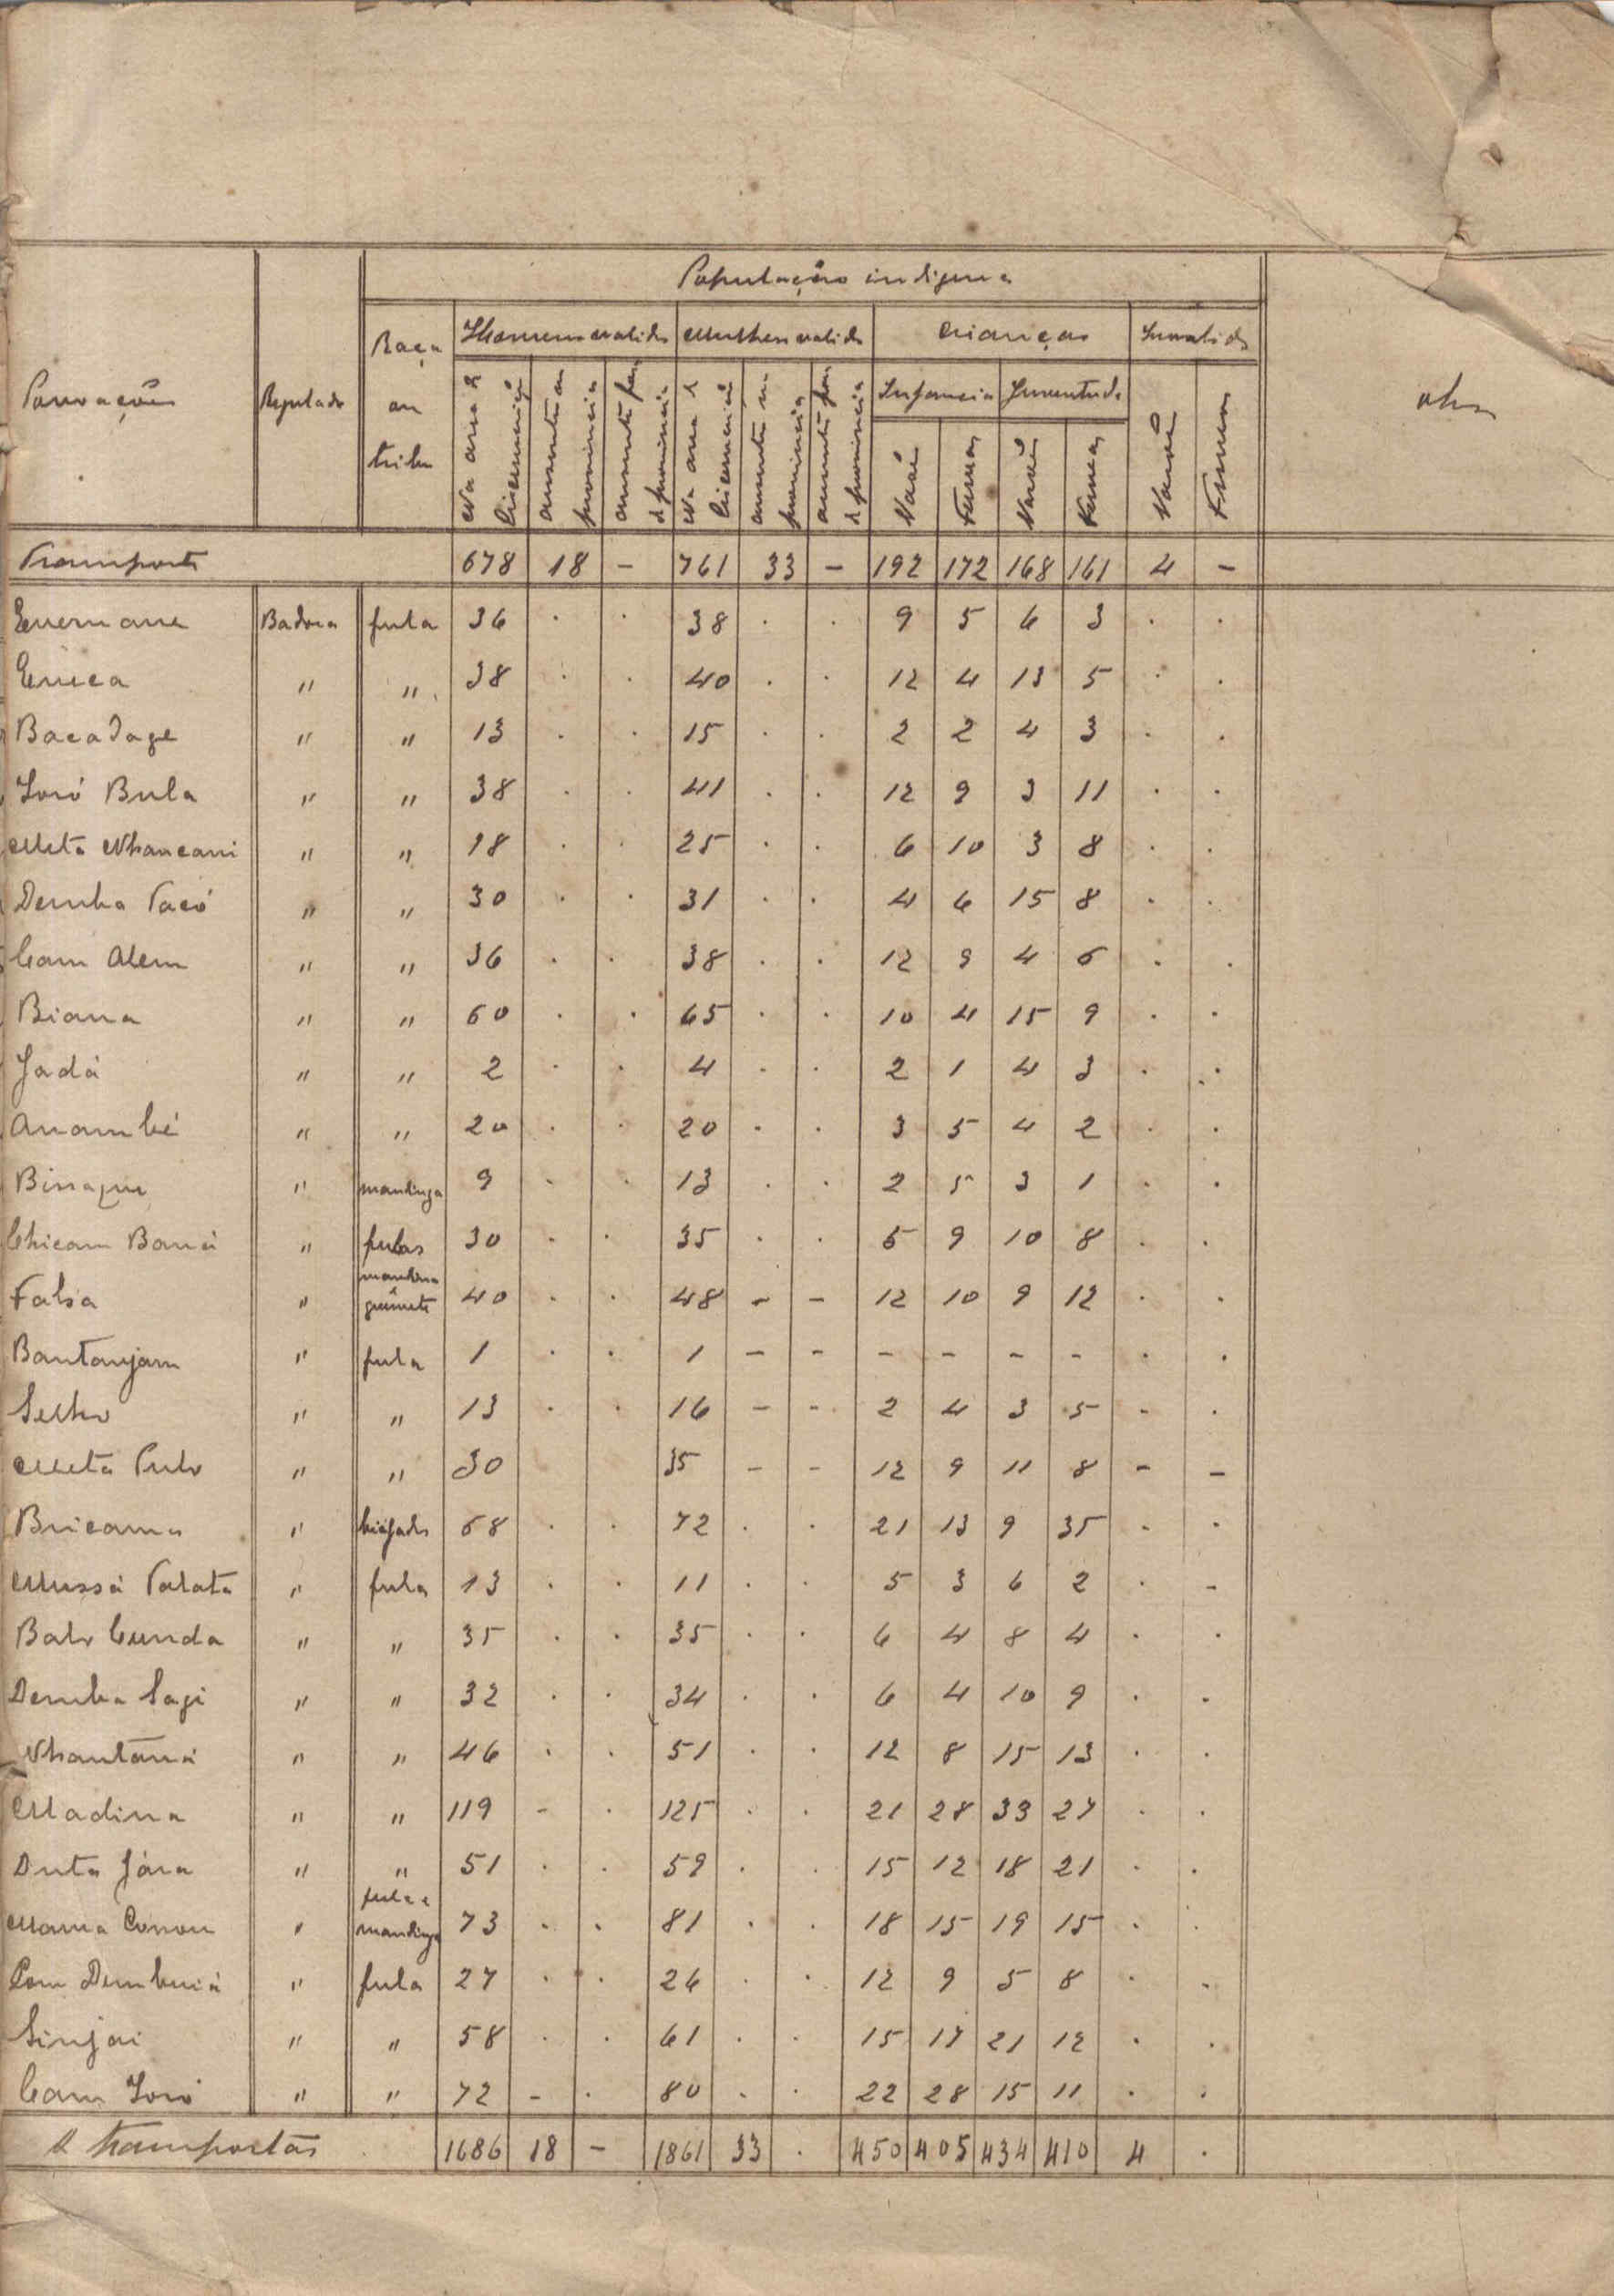 População indigena
Povoações Regulado Raça ou tribu Homens validos Mulheres validas Crianças Invalidos Obs
Infancia Juventude
Na area da circunscrição ausentes na provincia ausentes fora da provincia Na area da circunscrição ausentes na provincia ausentes fora da provincia Varões Femeas Varões Femeas Varões Femeas
Transporte 678 18 - 761 33 - 192 172 168 161 4 -
Badora fula 36 . . 38 . . 9 5 6 3 . .
" " 38 . . 40 . . 12 4 13 5 . .
Bacadage " " 13 . . 15 . . 2 2 4 3 . .
Soró Bula " " 38 . . 41 . . 12 9 3 11 . .
Metá Nhancani " " 18 . . 25 . . 6 10 3 8 . .
Demba Tacó " " 30 . . 31 . . 4 6 15 8 . .
Cam Alem " " 36 . . 38 . . 12 9 4 6 . .
Biana " " 60 . . 65 . . 10 4 15 9 . .
Jadá " " 2 . . 4 . . 2 1 4 3 . .
Anambé " " 20 . . 20 . . 3 5 4 2 . .
" mandinga 9 . . 13 . . 2 5 3 1 . .
Chicam Baná " fulas 30 . . 35 . . 5 9 10 8 . .
Falsa " 40 . . 48 - - 12 10 9 12 . .
Bantanjam " fula 1 . . 1 - - - - - - . .
" " 13 . . 16 - - 2 4 3 5 - .
Metá Pulo " " 30 35 - - 12 9 11 8 - -
Bricama " biafadas 68 . . 72 . . 21 13 9 35 . .
Mussá Palata " fula 13 . . 11 . . 5 3 6 2 . -
Balo Cunda " " 35 . . 35 . . 6 4 8 4 . .
Demba Sagi " " 32 . . 34 . . 6 4 10 9 . .
Nhantáná " " 46 . . 51 . . 12 8 15 13 . .
Madina " " 119 - . 125 . . 21 28 33 27 . .
Duta Jára " " 51 . . 59 . . 15 12 18 21 . .
Mama Conon " fula e mandinga 73 . . 81 . . 18 15 19 15 . .
" fula 27 . . 26 . . 12 9 5 8 . .
Sinjai " " 58 . . 61 . . 15 17 21 12 . .
Cam Soró " " 72 - . 80 . . 22 28 15 11 . .
A transportar 1686 18 - 1861 33 . 450 405 434 410 4 .